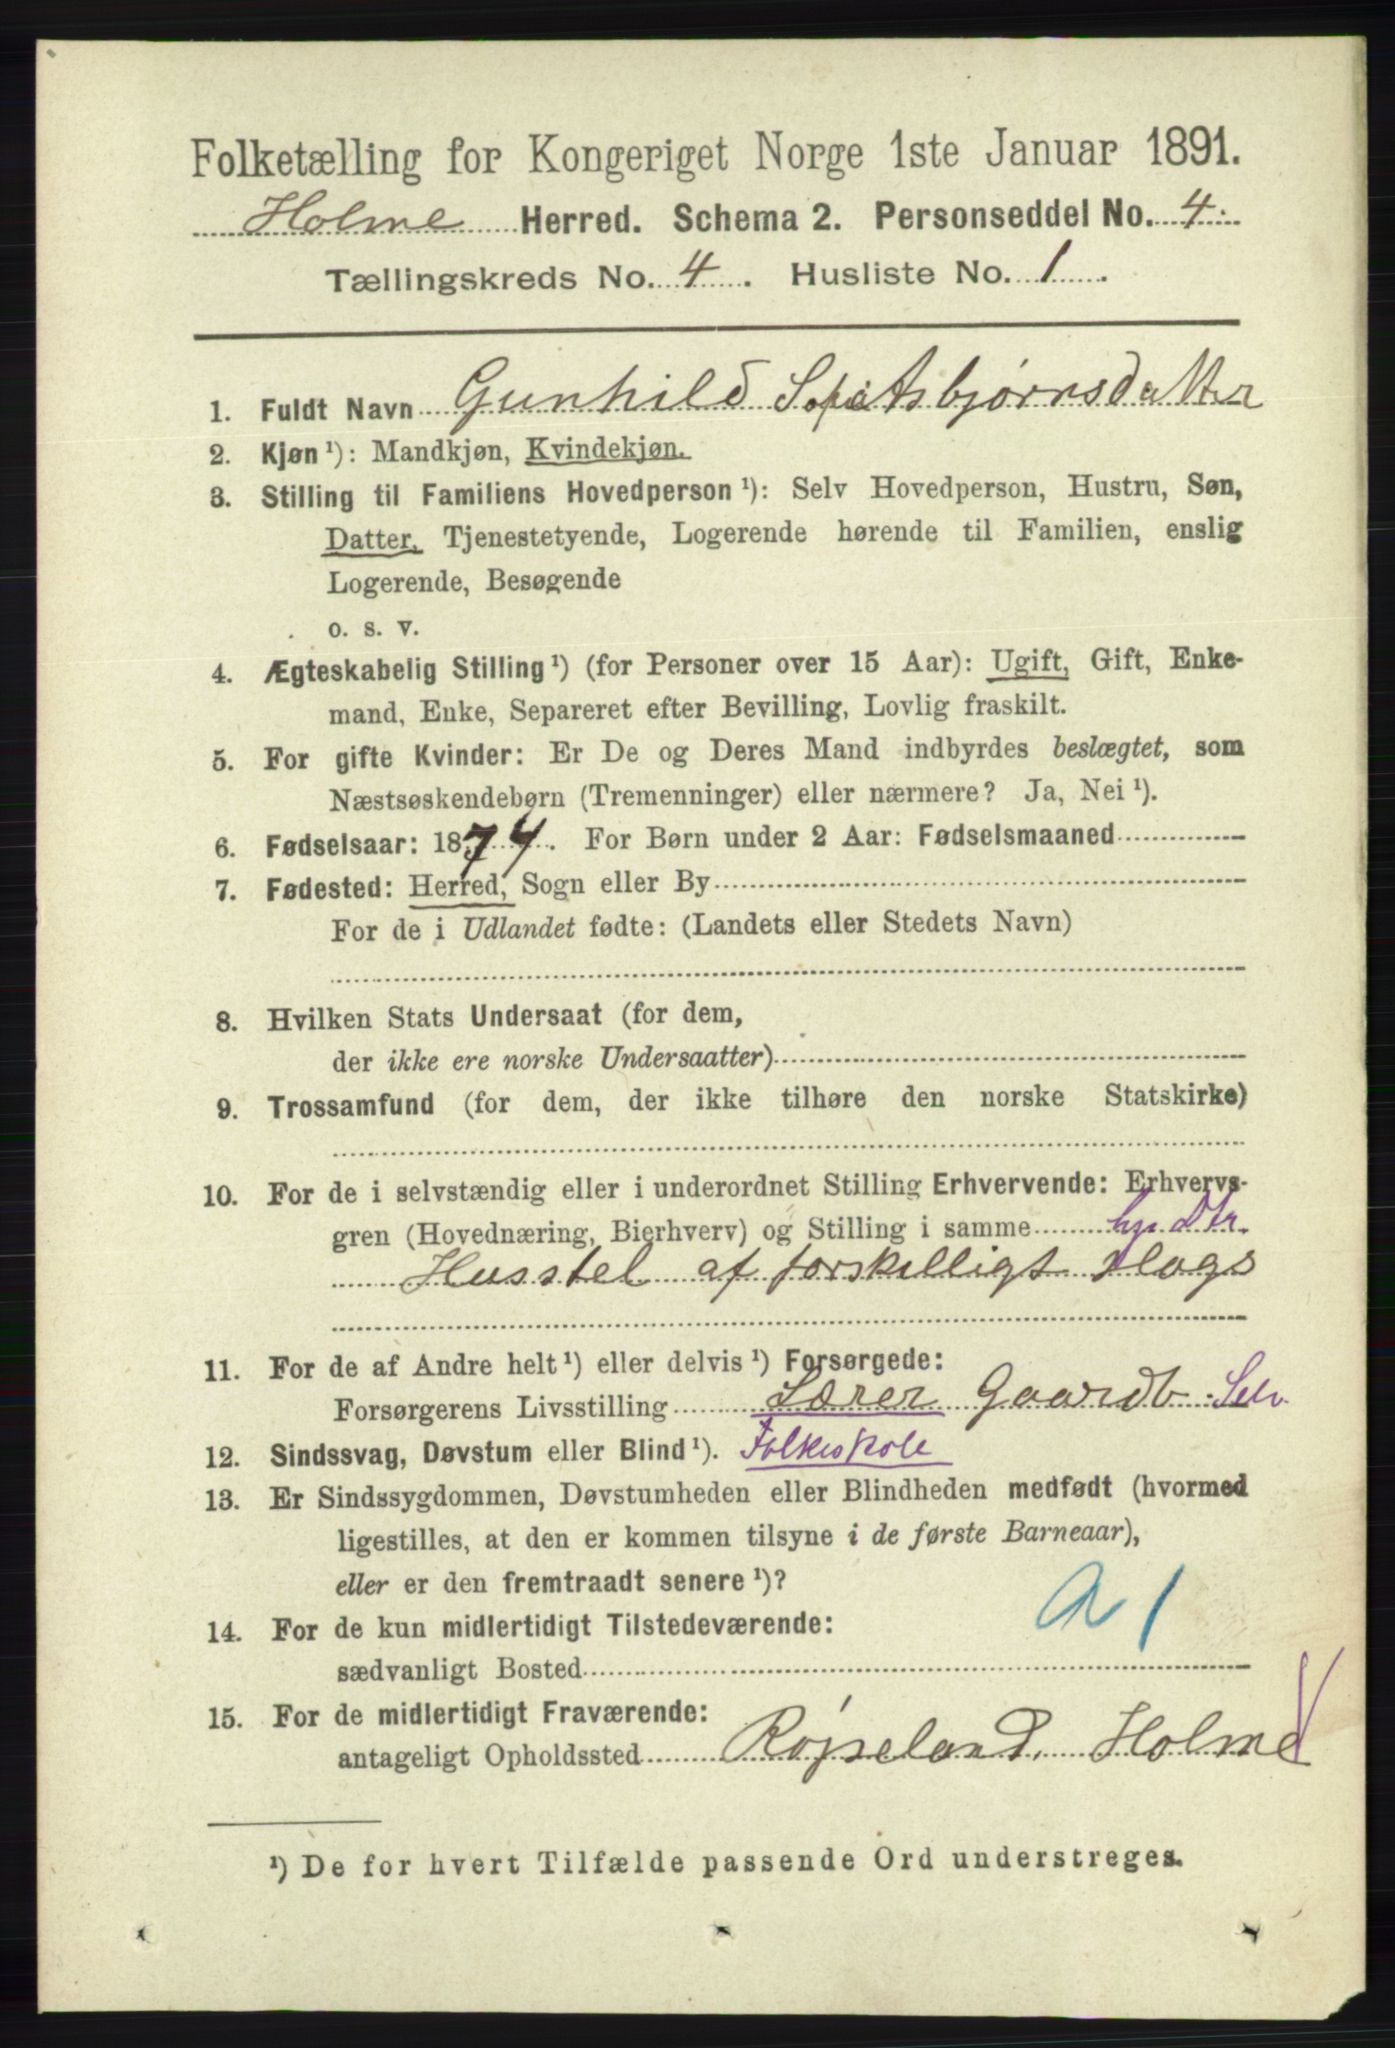 Folketælling for Kongeriget Norge 1ste Januar 1891.
Holme Herred. Schema 2. Personseddel No. 4.
Tællingskreds No. 4. Husliste No. 1.
1. Fuldt Navn Gunhild Sofie Asbjørnsdatter
2. Kjøn ¹): Mandkjøn, Kvindekjøn.
3. Stilling til Familiens Hovedperson ¹): Selv Hovedperson, Hustru, Søn,
Datter, Tjenestetyende, Logerende hørende til Familien, enslig
Logerende, Besøgende
o. s. v.
4. Ægteskabelig Stilling ¹) (for Personer over 15 Aar): Ugift, Gift, Enke-
mand, Enke, Separeret efter Bevilling, Lovlig fraskilt.
5. For gifte Kvinder: Er De og Deres Mand indbyrdes beslægtet, som
Næstsøskendebørn (Tremenninger) eller nærmere? Ja, Nei ¹).
6. Fødselsaar: 1874. For Børn under 2 Aar: Fødselsmaaned
7. Fødested: Herred, Sogn eller By
For de i Udlandet fødte: (Landets eller Stedets Navn)
8. Hvilken Stats Undersaat (for dem,
der ikke ere norske Undersaatter)
9. Trossamfund (for dem, der ikke tilhøre den norske Statskirke)
10. For de i selvstændig eller i underordnet Stilling Erhvervende: Erhvervs-
gren (Hovednæring, Bierhverv) og Stilling i samme hj. Dtr.
Husstel af forskelligt slags
11. For de af Andre helt ¹) eller delvis ¹) Forsørgede:
Forsørgerens Livsstilling Lærer Gaardb. Selv
12. Sindssvag, Døvstum eller Blind ¹). Folkeskole
13. Er Sindssygdommen, Døvstumheden eller Blindheden medfødt (hvormed
ligestilles, at den er kommen tilsyne i de første Barneaar),
eller er den fremtraadt senere ¹)?
a 1
14. For de kun midlertidigt Tilstedeværende:
sædvanligt Bosted
15. For de midlertidigt Fraværende:
antageligt Opholdssted Røjseland, Holme
¹) De for hvert Tilfælde passende Ord understreges.